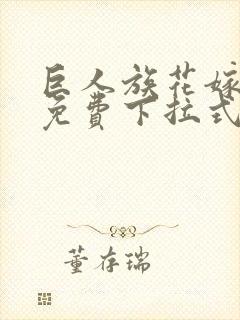 巨人族花嫁
免費下拉式
董存瑞